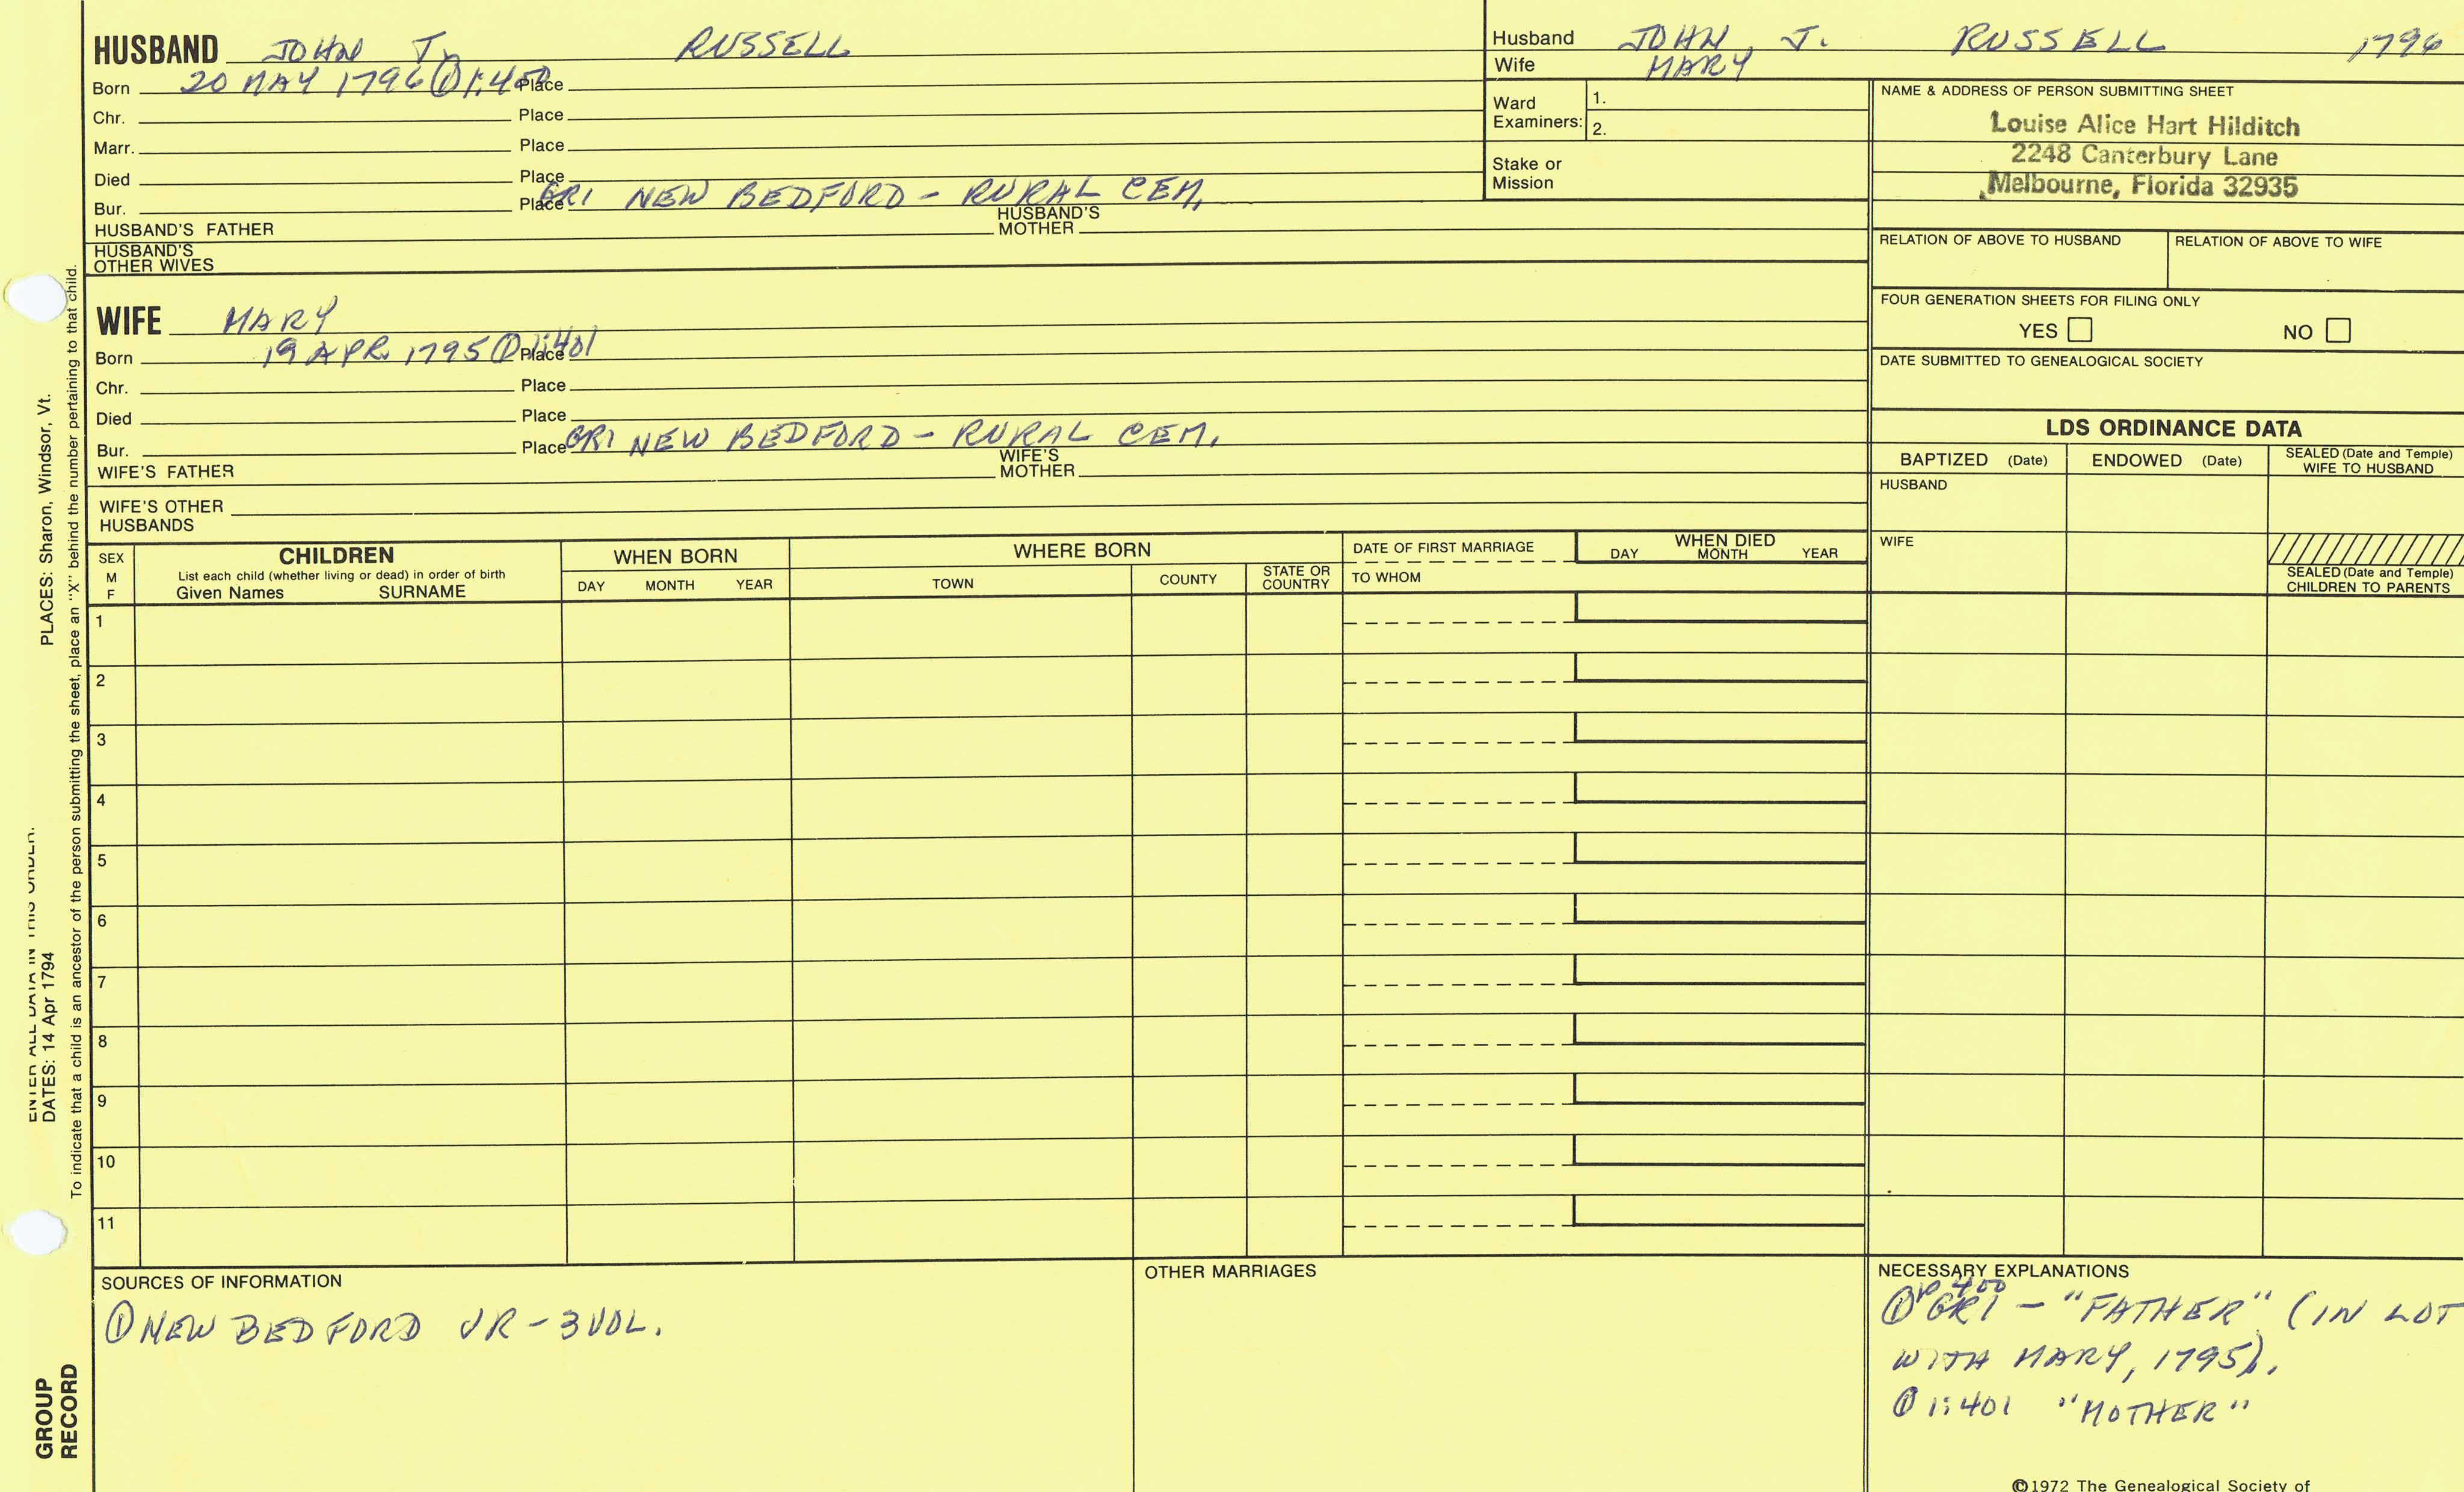 HUSBAND JOHN J. RUSSELL
Born 20 MAY 1796 ① 1:400 Place
Chr. Place
Marr. Place
Died Place
Bur. Place GR1 NEW BEDFORD - RURAL CEM.
HUSBAND'S FATHER HUSBAND'S MOTHER
HUSBAND'S OTHER WIVES
WIFE MARY
Born 19 APR. 1795 ① 1:401 Place
Chr. Place
Died Place
Bur. Place GR1 NEW BEDFORD - RURAL CEM.
WIFE'S FATHER WIFE'S MOTHER
WIFE'S OTHER HUSBANDS
Husband JOHN, J. RUSSELL 1796
Wife MARY
Ward Examiners: 1.
2.
Stake or Mission
NAME & ADDRESS OF PERSON SUBMITTING SHEET
Louise Alice Hart Hilditch
2248 Canterbury Lane
Melbourne, Florida 32935
RELATION OF ABOVE TO HUSBAND RELATION OF ABOVE TO WIFE
FOUR GENERATION SHEETS FOR FILING ONLY
YES NO
DATE SUBMITTED TO GENEALOGICAL SOCIETY
LDS ORDINANCE DATA
BAPTIZED (Date) ENDOWED (Date) SEALED (Date and Temple) WIFE TO HUSBAND
HUSBAND
WIFE
SEALED (Date and Temple)
CHILDREN TO PARENTS
SEX M F
CHILDREN
List each child (whether living or dead) in order of birth
Given Names SURNAME
WHEN BORN
DAY MONTH YEAR
WHERE BORN
TOWN COUNTY STATE OR COUNTRY
DATE OF FIRST MARRIAGE
TO WHOM
WHEN DIED
DAY MONTH YEAR
1
2
3
4
5
6
7
8
9
10
11
SOURCES OF INFORMATION
① NEW BEDFORD VR - 3 VOL.
OTHER MARRIAGES
NECESSARY EXPLANATIONS
① P 400 GR1 - "FATHER" (IN LOT
WITH MARY, 1795).
① 1:401 "MOTHER"
©1972 The Genealogical Society of
PLACES: Sharon, Windsor, Vt.
ENTER ALL DATA IN THIS ORDER:
DATES: 14 Apr 1794
To indicate that a child is an ancestor of the person submitting the sheet, place an "X" behind the number pertaining to that child.
GROUP
RECORD